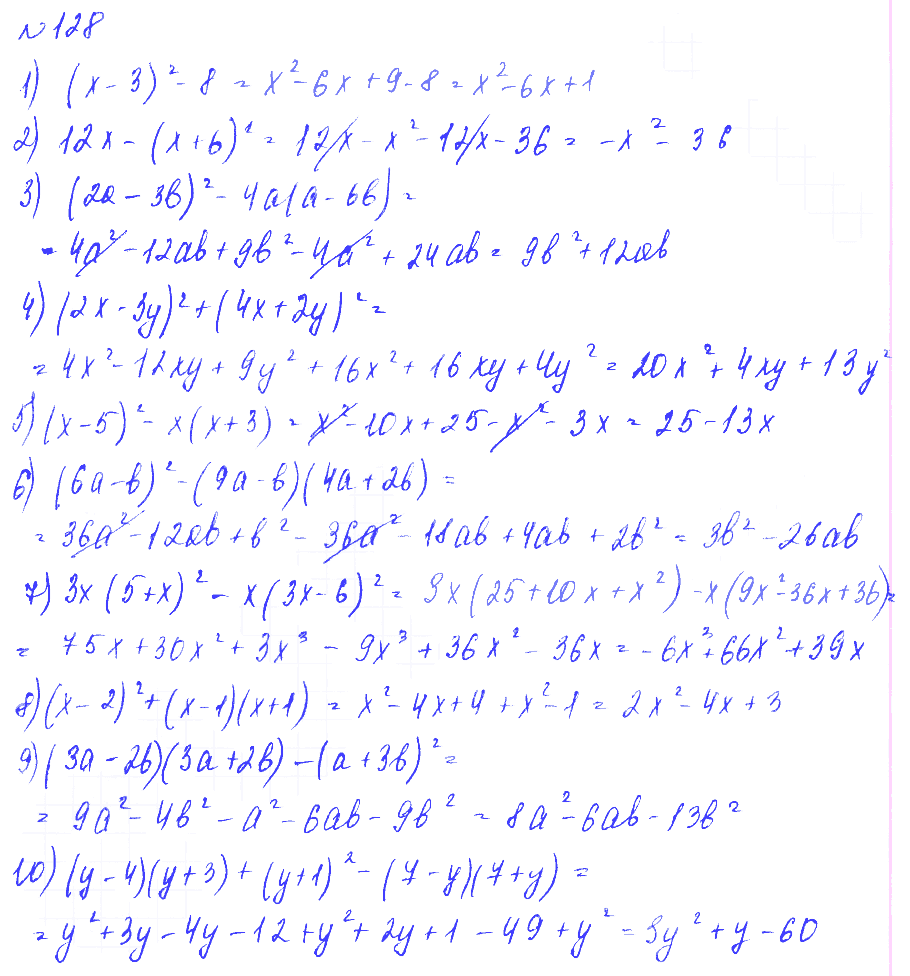 №128
1) (x - 3)² - 8 = x² - 6x + 9 - 8 = x² - 6x + 1
2) 12x - (x + 6)² = 12x - x² - 12x - 36 = -x² - 36
3) (2a - 3b)² - 4a(a - 6b) =
= 4a² - 12ab + 9b² - 4a² + 24ab = 9b² + 12ab
4) (2x - 3y)² + (4x + 2y)² =
= 4x² - 12xy + 9y² + 16x² + 16xy + 4y² = 20x² + 4xy + 13y²
5) (x - 5)² - x(x + 3) = x² - 10x + 25 - x² - 3x = 25 - 13x
6) (6a - b)² - (9a - b)(4a + 2b) =
= 36a² - 12ab + b² - 36a² - 18ab + 4ab + 2b² = 3b² - 26ab
7) 3x(5 + x)² - x(3x - 6)² = 3x(25 + 10x + x²) - x(9x² - 36x + 36) =
= 75x + 30x² + 3x³ - 9x³ + 36x² - 36x = -6x³ + 66x² + 39x
8) (x - 2)² + (x - 1)(x + 1) = x² - 4x + 4 + x² - 1 = 2x² - 4x + 3
9) (3a - 2b)(3a + 2b) - (a + 3b)² =
= 9a² - 4b² - a² - 6ab - 9b² = 8a² - 6ab - 13b²
10) (y - 4)(y + 3) + (y + 1)² - (7 - y)(7 + y) =
= y² + 3y - 4y - 12 + y² + 2y + 1 - 49 + y² = 3y² + y - 60